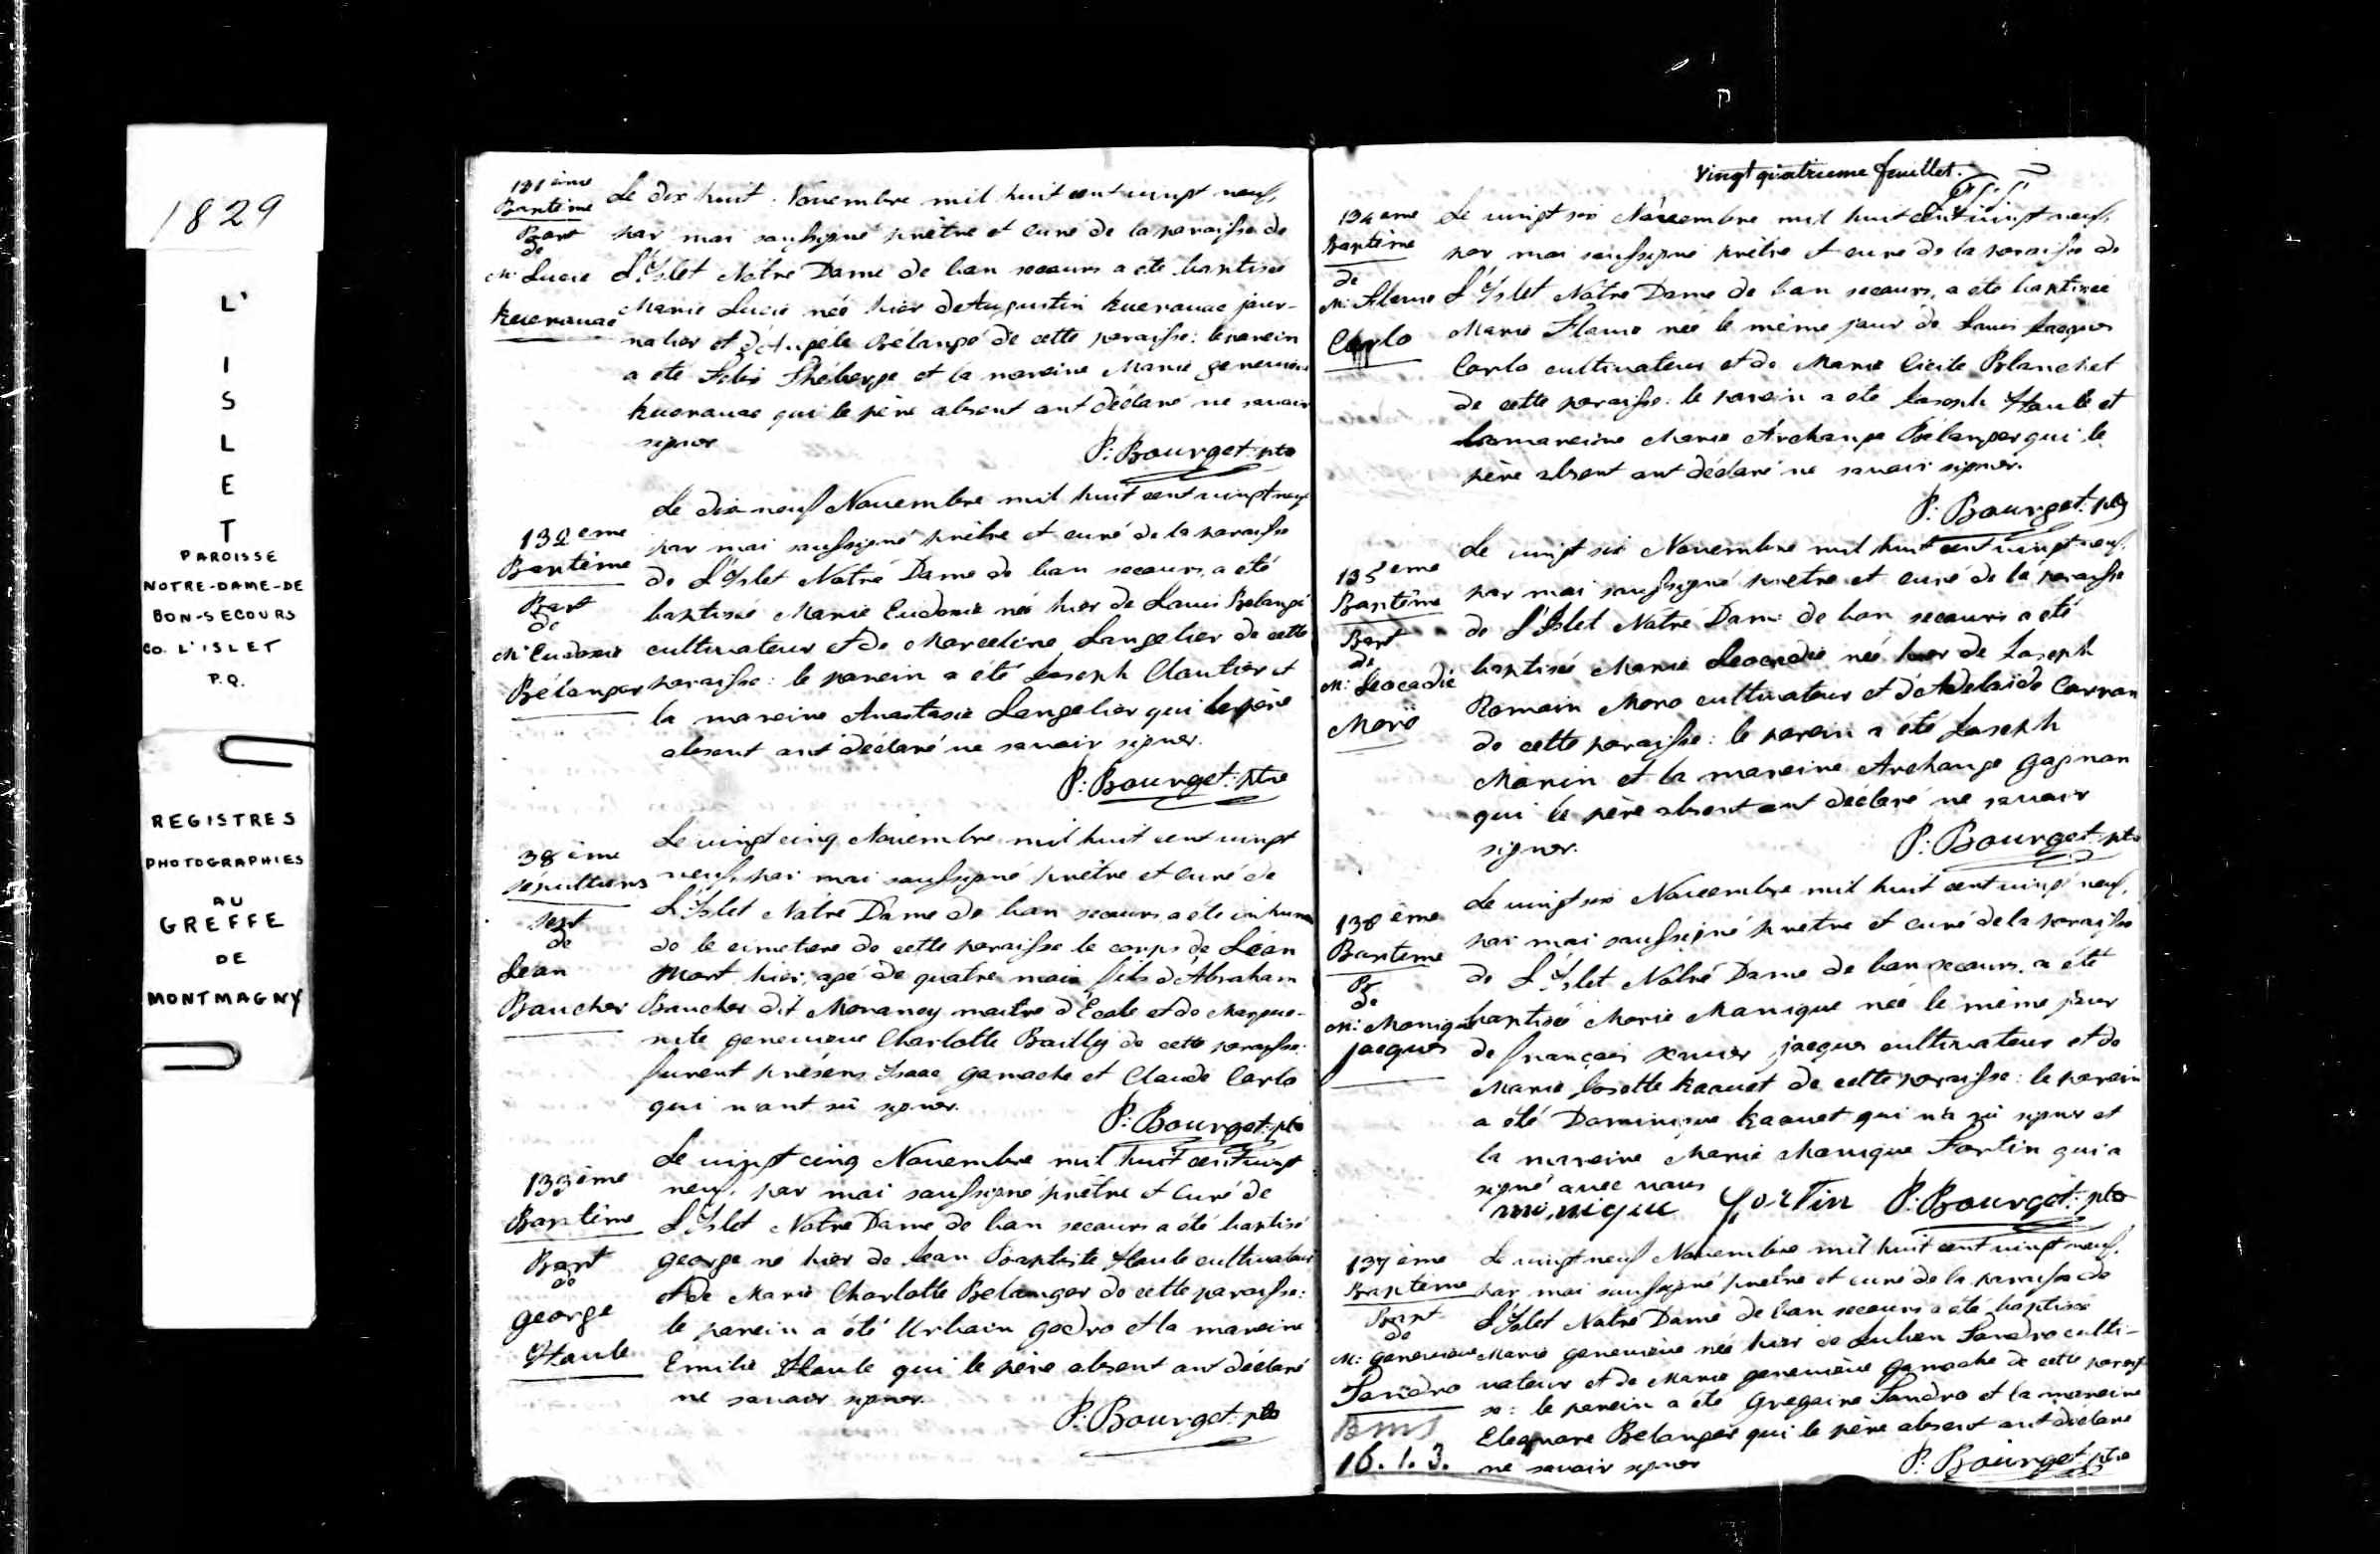 1829
L'
I
S
L
E
T
PAROISSE
NOTRE-DAME-DE
BON-SECOURS
CO. L'ISLET
P.Q.
REGISTRES
PHOTOGRAPHIES
AU
GREFFE
DE
MONTMAGNY
131ème
Baptême
Bapt
de
M: Lucie
Kuerauac
Le dix huit Novembre mil huit cent vingt neuf,
par moi soussigné prêtre et curé de la paroisse de
L'Yslet Nôtre Dame de bon secours a été baptisée
Marie Lucie née hier de Augustin Kuerauac jour-
nalier et d'Angéle Bélangé de cette paroisse: le parein
a été Théberge et la mareine Marie genevieve
Kuerauac qui le père absent ont déclaré ne savoir
signer
P: Bourget ptre
132eme
Baptême
Bapt
de
M: Eudoxie
Bélanger
Le dix neuf Novembre mil huit cent vingt neuf
par moi soussigné prêtre et curé de la paroisse
de L'Yslet Notre Dame de bon secours, a été
baptisée Marie Eudoxie née hier de Louis Belangé
cultivateur et de Marceline Langelier de cette
paroisse: le parein a été Joseph Cloutier et
la mareine Anastasie Langelier qui le père
absent ont déclaré ne savoir signer.
P: Bourget: ptre
38ème
sépultures
sept
de
Jean
Boucher
Le vingt cinq Novembre mil huit cent vingt
neuf, par moi soussigné prêtre et curé de
L'Yslet Notre Dame de bon secours, a été inhumé
de le cimetiere de cette paroisse le corps de Jean
Mort hier, agé de quatre mois fils d'Abraham
Boucher dit Morancy maitre d'École et de Margue-
rite genevieve Charlotte Bailly de cette paroisse:
furent présens Isaac gamache et Claude Carlo
qui n'ont sû signer.
P: Bourget: ptre
133ème
Baptême
Bapt
de
george
Haule
Le vingt cinq Novembre mil huit cent vingt
neuf, par moi soussigné prêtre et Curé de
L'Yslet Notre Dame de bon secours a été baptisé
george né hier de Jean Baptiste Haule cultivateur
et de Marie Charlotte Belanger de cette paroisse:
le parein a été Urbain godro et la mareine
Emilie Haule qui le père absent ont déclaré
ne savoir signer.
P: Bourget: ptre
Vingt quatrieme feuillet.
134eme
Baptême
de
Carlo
Le vingt six Novembre mil huit cent vingt neuf,
par moi soussigné prêtre et curé de la paroisse de
L'Yslet Nôtre Dame de bon secours, a été baptisée
Marie née le même jour de Louis Jacques
Carlo cultivateur et de Marie Cicile Blanchet
de cette paroisse: le parein a été Joseph Haule et
la mareine Marie Archange Bélanger qui le
père absent ont déclaré ne savoir signer.
P: Bourget: ptre
135eme
Baptême
Bapt
de
M: Léocadie
Moro
Le vingt six Novembre mil huit cent vingt neuf,
par moi soussigné prêtre et curé de la paroisse
de L'Islet Notre Dame de bon secours a été
baptisée Marie Leocadie née hier de Joseph
Romain Moro cultivateur et d'Adelaide Carron
de cette paroisse: le parein a été Joseph
Morin et la mareine Archange gagnon
qui le père absent ont déclaré ne savoir
signer.
P: Bourget: ptre
136ème
Baptême
de
M: Monique
jacques
Le vingt six Novembre mil huit cent vingt neuf,
par moi soussigné prêtre et curé de la paroisse
de L'Yslet Notre Dame de bon secours, a été
baptisée Marie Monique née le même jour
de françois xavier jacques cultivateur et de
Marie Josette Kaouet de cette paroisse: le parein
a été Dominique Kaouet qui n'a sû signer et
la mareine Marie Monique Fortin qui a
signé avec nous
monique fortin P: Bourget: ptre
137ème
Baptême
Bapt
de
M: Genevieve
Landro
Bms
16. 1. 3.
Le vingt neuf Novembre mil huit cent vingt neuf,
par moi soussigné prêtre et curé de la paroisse de
L'Yslet Notre Dame de bon secours a été baptisée
Marie geneviève née hier de Julien Landro culti-
vateur et de Marie geneviève gamache de cette parois
se: le parein a été Gregoire Landro et la mareine
Eleonore Belanger qui le père absent ont déclaré
ne savoir signer
P: Bourget ptre